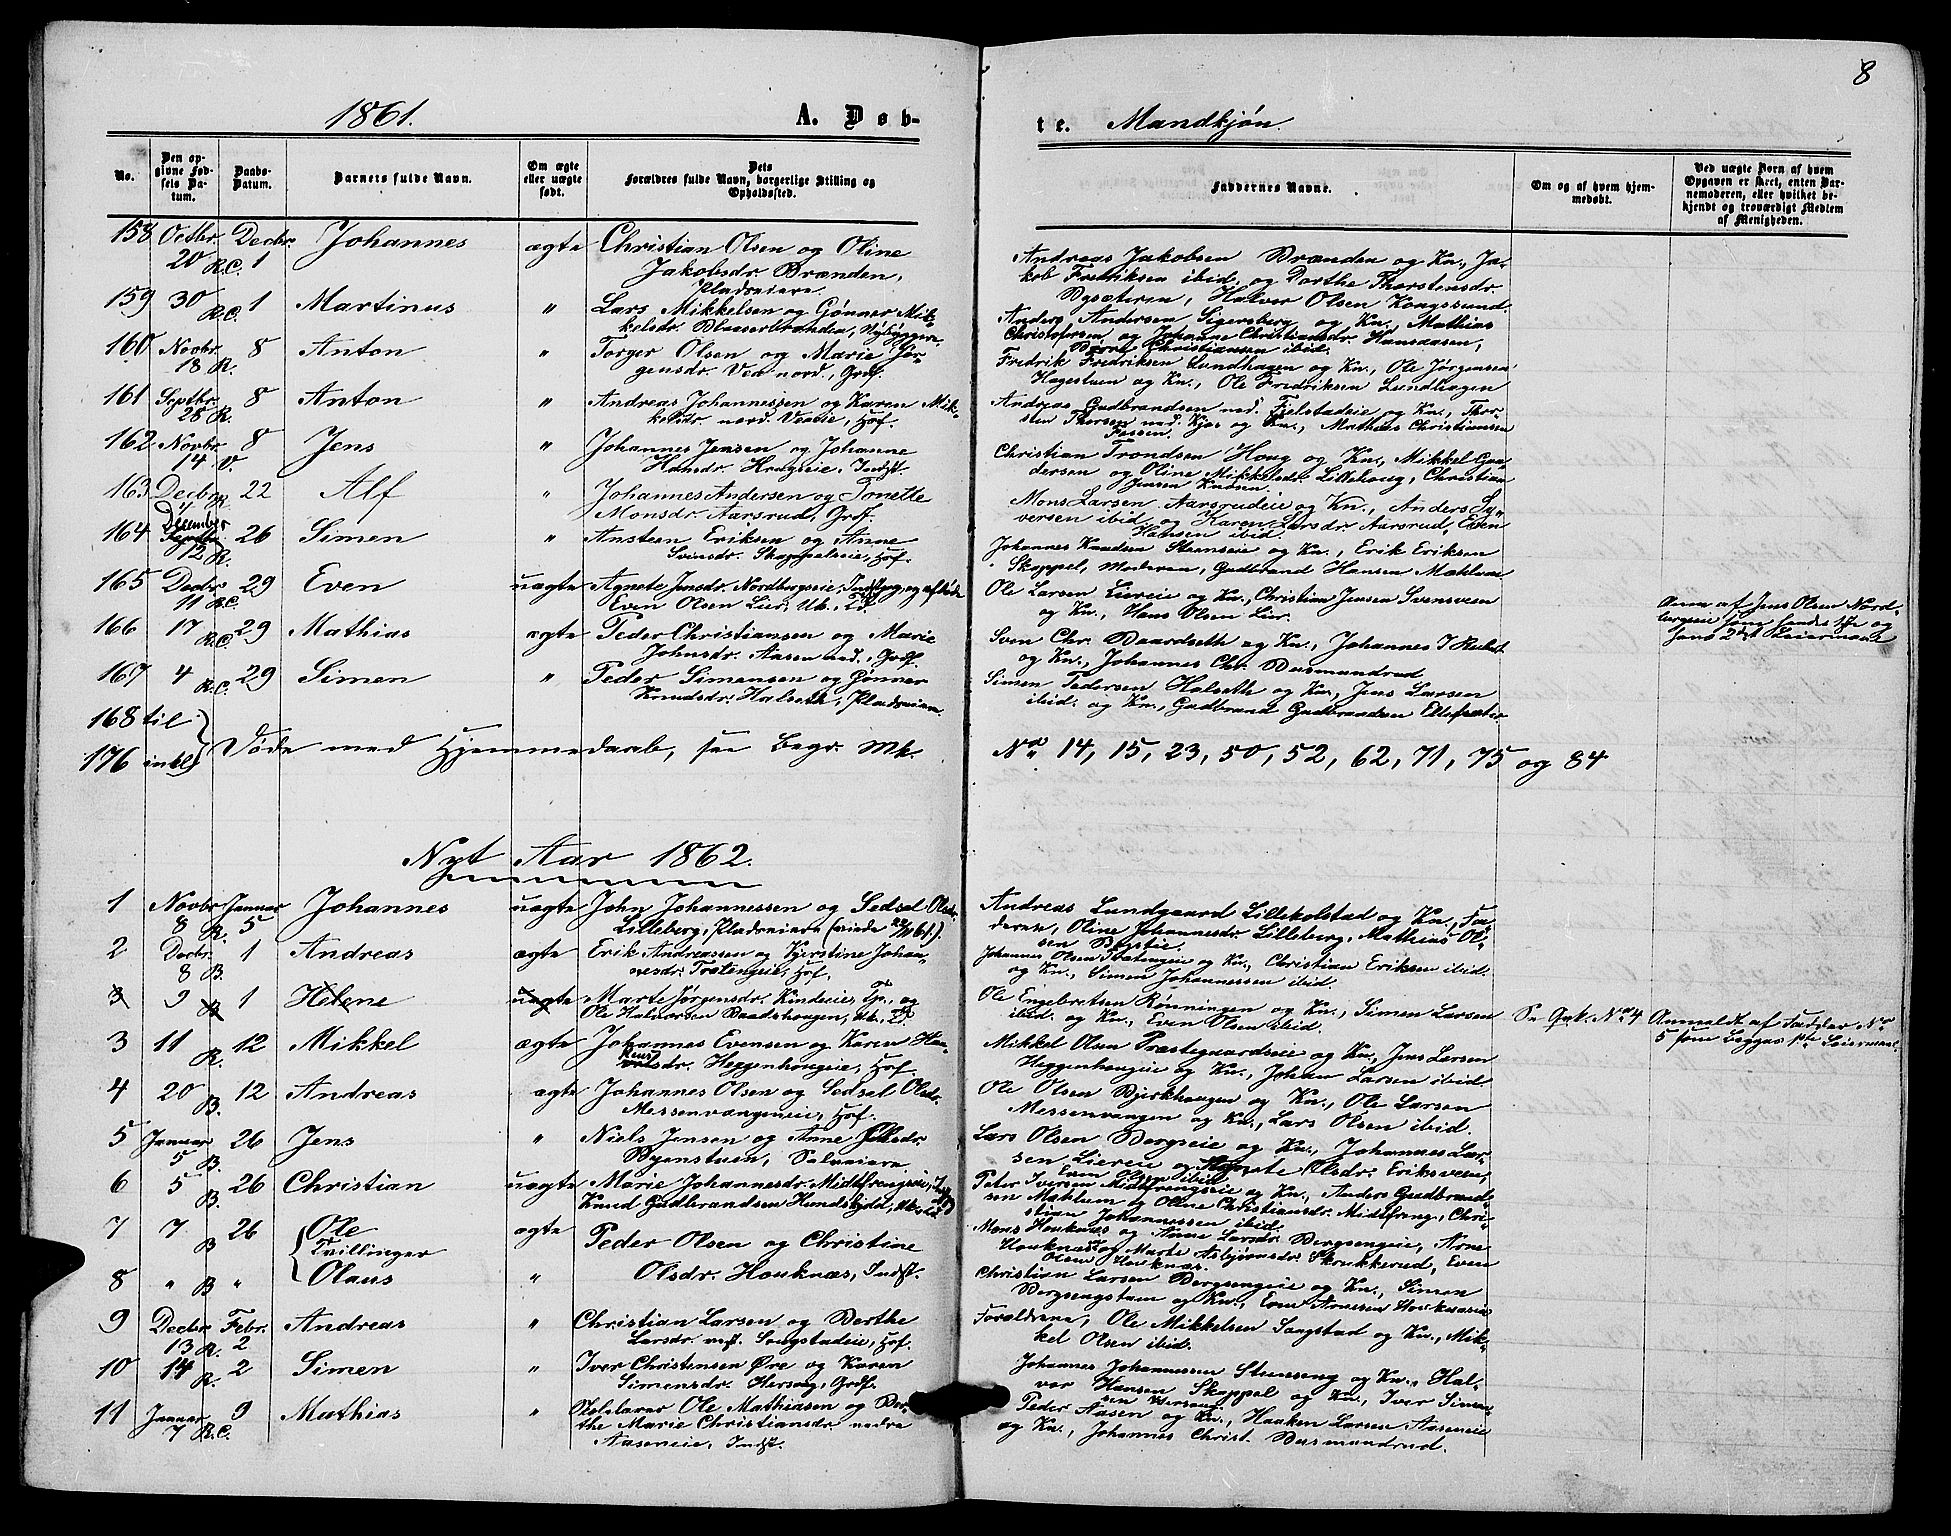 8
1861.
A. Døb-
te. Mandkjøn.
No.
Den op-
givne Fød-
sels Da-
tum.
Daabs-
Datum.
Barnets fulde Navn.
Om ægte
eller uægte
født.
Dets
Forældres fulde Navn, borgerlige Stilling og
Opholdssted.
Faddernes Navne.
Om og af hvem hjem-
medøbt.
Ved uægte Børn af hvem
Opgaven er skeet, enten Bar-
nemoderen, eller hvilket be-
kjendt og troværdigt Medlem
af Menigheden.
158 Octbr. Decbr. Johannes ægte Christian Olsen og Oline
20 R.C. 1 Jakobsdr. Brænden,
Pladseiere.
Andreas Jakobsen Brænden og Kn., Ja-
kob Fredriksen ibid. og Dorthe Thorstensdr.
Bysæteren, Halvor Olsen Kongssund.
159 30 R.C. 1 Martinus " Lars Mikkelsen og Gønner Mik-
kelsdr. Blaaserbrænden, Nybyggere
Anders Andersen Sigersberg og Kn., Mathias
Christofersen og Johanne Christiansdr. Hansaasen,
Bernt Christiansen ibid.
160 Novbr. 8 Anton " Torger Olsen og Marie Jør-
18 R. gensdr. Ven nord., Grdf.
Fredrik Fredriksen Lundhagen og Kn., Ole Jørgensen
Hagestuen og Kn., Ole Fredriksen Lundhagen
161 Septbr. 8 Anton " Andreas Johannessen og Karen Mik-
28 R. kelsdr. nord. Veneie, Hof.
Andreas Gudbrandsen ned. Fjelstadeie og Kn., Thor-
sten Thorsen ned. Kjos og Kn., Mathias Christiansen
Fossen.
162 Novbr. 8 Jens " Johannes Jensen og Johanne
14. V. Hansdr. Hougseie, Indst.
Christian Trondsen Houg og Kn., Mikkel Gun-
dersen og Oline Mikkelsdr. Lillehoug, Christian
Jensen Knosen.
163 Decbr. 22 Alf " Johannes Andersen og Tonette
Monsdr. Aarsrud, Grdf.
Mons Larsen Aarsrudeie og Kn., Anders Sy-
versen ibid. og Karen Larsdr. Aarsrud, Even
Hansen ibid.
164 December 26 Simen " Ansteen Eriksen og Anne
12 R. Svensdr. Skappelseie, Hof.
Johannes Knudsen Steenseie og Kn., Erik Eriksen
Skappel, Moderen, Gudbrand Hansen Mæhlum
165 Decbr. 29 Even uægte Agnete Jensdr. Nordbergseie, Ind.
11 R.C. Even Olsen Lier, Uk.
Ole Larsen Liereie og Kn., Christian Jensen Svensveen
og Kn., Hans Olsen Lier.
Anm. af Jens Olsen Nord-
bergseie som hendes 1ste og
hans 2det Leiermaal
166 17 R.C. 29 Mathias ægte Peder Christiansen og Marie
Johnsdr. Aasen ned., Grdf.
Sven Chr. Baardseth og Kn., Johannes J.
og Kn., Johannes Chr. Busmandrud
167 4 R.C. 29 Simen " Peder Simensen og Gønner
Knudsdr. Halseth, Pladseiere
Simen Pedersen Halseth og Kn., Jens Larsen
ibid. og Kn., Gudbrand Gudbrandsen
168 til
176 inkl. Døde med Hjemmedaab, see Begr. Mk. No. 14, 15, 23, 50, 52, 62, 71, 75 og 84
Nyt Aar 1862.
1 Novbr. Januar Johannes uægte John Johannessen og Sedsel Olsdr.
8 R. 5 Lilleberg, Pladseiere (viede 61.).
Andreas Lundgaard Lillekolstad og Kn., Fa-
deren, Oline Johannesdr. Lilleberg, Mathias Ol-
sen Bystie.
2 Decbr. 1 Andreas ægte Erik Andreassen og Kjerstine Johan-
8 B. nesdr. Tretengeie, Hof.
Johannes Olsen Tretengeie og Kn., Christian Eriksen ibid.
og Kn., Simen Johannessen ibid.
3 9 B 1 Helene uægte Marte Jørgensdr. Kindeeie, Tj., og
Ole Halvorsen Baadshougen, Uk.
Ole Engebretsen Rønningen og Kn., Simen Larsen
ibid. og Kn., Even Olsen ibid.
Se Qvk. No. 4
Anmeldt af Fadder No.
5 som begges 1ste Leiermaal.
3 11 R. 12 Mikkel ægte Johannes Evensen og Karen Han-
sdr. Heggenhougeie, Hof.
Mikkel Olsen Præstegaardseie og Kn., Jens Larsen
Heggenhougeie og Kn., Johan Larsen ibid.
4 20 B. 12 Andreas ægte Johannes Olsen og Sedsel Olsdr.
Messenvangeneie, Hof.
Ole Olsen Bjerkhaugen og Kn., Ole Larsen
Messenvangen og Kn., Lars Olsen ibid.
5 Januar 26 Jens " Niels Jensen og Anne Olsdr.
5 B. Byenstuen, Selveiere
Lars Olsen Bergseie og Kn., Johannes Lar-
sen Liereie og Agnete Olsdr. Eriksveen,
Even Olsen ibid.
6 5 B. 26 Christian uægte Marie Johannesdr. Midtfrengeie,
Knud Gudbrandsen Hundskydd,
Peter Iversen Midtfrengseie og Kn., Anders Gudbrand-
sen Mæhlum og Oline Christiansdr. Midtfreng, Chri-
stian Johannessen ibid.
7 7 B 26 Ole ægte Peder Olsen og Christine
Tvillinger
8 " B " Olaus " Olsdr. Houknæs, Indst.
Mons Houknæs og Anne Larsdr. Bergsengeie, Arne
Houknæs og Marte Asbjørnsdr. Skrukkerud, Even
Olsen Houknæs.
Christian Larsen Bergsengeie og Kn., Simen
Bergsengstuen og Kn., Even Arnesen Houknæseie
9 Decbr. Febr. Andreas " Christian Larsen og Berthe
13 R. 2 Larsdr. ned. Sougstadeie, Hof.
Forældrene, Ole Mikkelsen Sougstad og Kn., Mik-
kel Olsen ibid.
10 14 R. 2 Simen " Iver Christensen Øre og Karen
Simensdr. Hersoug, Grdf.
Johannes Johannessen Steenseng og Kn., Hal-
vor Hansen Skappel og Kn., Iver Simen-
sen Hersoug
11 Januar 9 Mathias " Skolelærer Ole Mathiasen og Ber-
7 R.C. the Marie Christiansdr. nedre
Aaseneie, Indst.
Peder Aasen og Kn., Haaken Larsen Aaseneie
og Kn., Johannes Christ. Busmandrud.